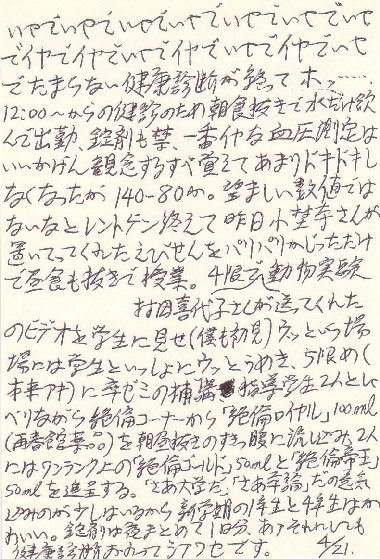 いやでいやでいやでいやでいやでいやでいや
でイヤでイヤでいやでイヤでいやでイヤでいや
でたまらない健康診断が終ってホッ……
12:00〜からの健診のため朝食抜きで水だけ飲
んで出勤、錠剤も禁、一番イヤな血圧測定は
いいかげん観念するすべ覚えてあまりドキドキし
なくなったが140-80か。望ましい数値では
ないなとレントゲン終えて昨日小埜寺さんが
置いてってくれたえびせんをバリバリかじっただけ
で昼食も抜きで授業。4限で動物実験
村田喜代子さんが送ってくれた
のビデオを学生に見せ(僕も初見)ウッという場
場には学生といっしょにウッとうめき、5限め(
本来アキ)に卒ゼミの補講 指導学生2人としゃ
べりながら絶倫コーナーから「絶倫ロイヤル」100ml
(再春館薬品)を朝昼抜きのすき腹に流し込み、2人
にはワンランク上の「絶倫ゴールド」50mlと「絶倫帝王」
50mlを進呈する。「さあ大学だ」「さあ卒論」だの意気
込みのが少しはいるから新学期の1年生と4年生はか
わいい。錠剤は夜まとめて1日分、あゝそれにしても
健康診断おわってシアワセです。 4/21.